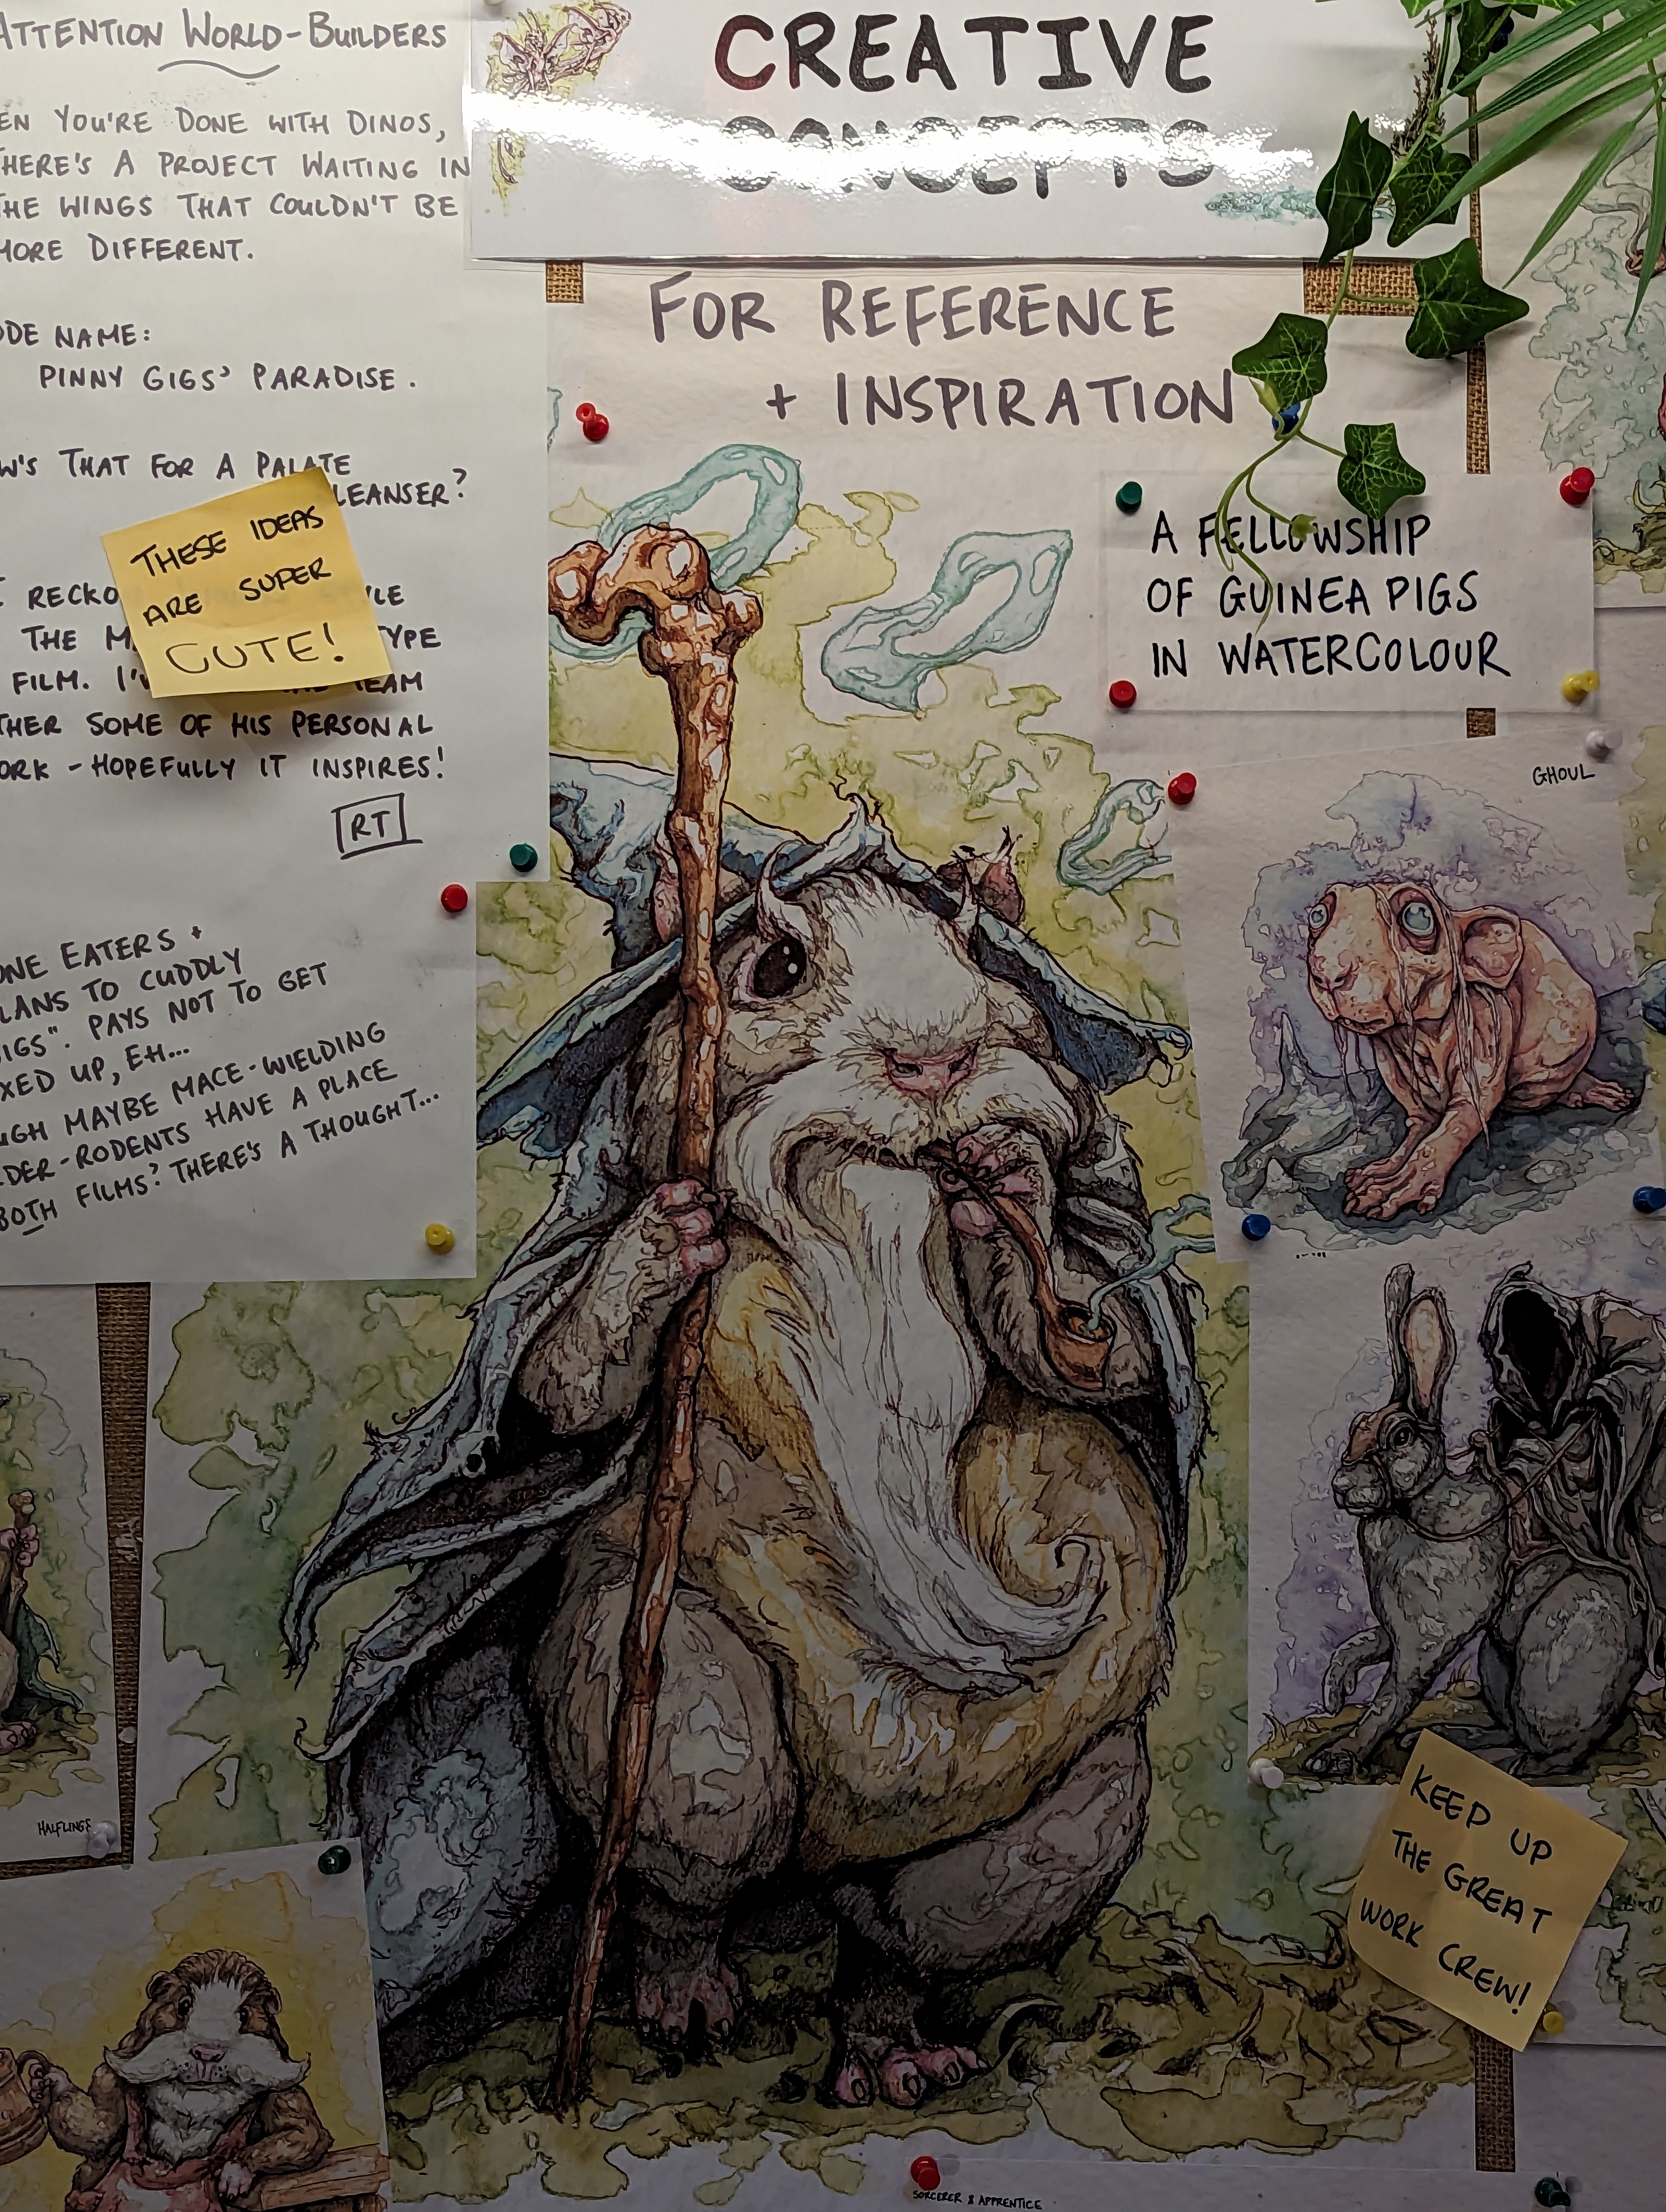 ATTENTION WORLD-BUILDERS
EN YOU'RE DONE WITH DINOS,
HERE'S A PROJECT WAITING IN
HE WINGS THAT COULDN'T BE
MORE DIFFERENT.
ODE NAME:
PINNY GIGS' PARADISE.
W'S THAT FOR A PALATE
LEANSER?
THESE IDEAS
ARE SUPER
CUTE!
RECKO
THE M TYPE
FILM. I'V TEAM
THER SOME OF HIS PERSONAL
ORK - HOPEFULLY IT INSPIRES!
RT
ONE EATERS +
LANS TO CUDDLY
IGS". PAYS NOT TO GET
XED UP, EH...
UGH MAYBE MACE-WIELDING
DER-RODENTS HAVE A PLACE
BOTH FILMS? THERE'S A THOUGHT...
CREATIVE
CONCEPTS
FOR REFERENCE
+ INSPIRATION
A FELLOWSHIP
OF GUINEA PIGS
IN WATERCOLOUR
GHOUL
HALFLINGS
KEEP UP
THE GREAT
WORK CREW!
SORCERER & APPRENTICE